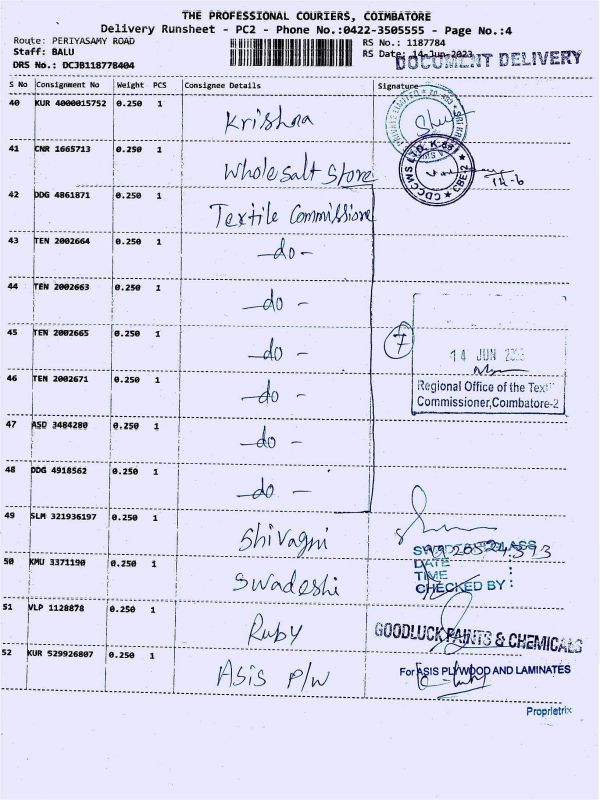 THE PROFESSIONAL COURIERS, COIMBATORE
Delivery Runsheet - PC2 - Phone No.:0422-3505555 - Page No.:4
Route: PERIYASAMY ROAD
RS No.: 1187784
Staff: BALU
RS Date: 14-Jun-2023
DRS No.: DCJB118778404
DOCUMENT DELIVERY
S No Consignment No Weight PCS Consignee Details Signature
40 KUR 4000015752 0.250 1 Krishna
41 CNR 1665713 0.250 1 Whole salt Store
CDCCWS LTD. K-581
CBE-2
14-6
42 DDG 4861871 0.250 1 Textile Commissione
43 TEN 2002664 0.250 1 -do-
44 TEN 2002663 0.250 1 -do-
45 TEN 2002665 0.250 1 -do-
7
14 JUN
46 TEN 2002671 0.250 1 -do-
Regional Office of the Text
Commissioner,Coimbatore-2
47 ASD 3484280 0.250 1 -do-
48 DDG 4918562 0.250 1 -do-
49 SLM 321936197 0.250 1 Shivagni
50 KMU 3371190 0.250 1 Swadeshi
DATE :
TIME :
CHECKED BY :
51 VLP 1128878 0.250 1 Ruby
GOODLUCK PAINTS & CHEMICALS
52 KUR 529926807 0.250 1 Asis P/w
For ASIS PLYWOOD AND LAMINATES
Proprietrix